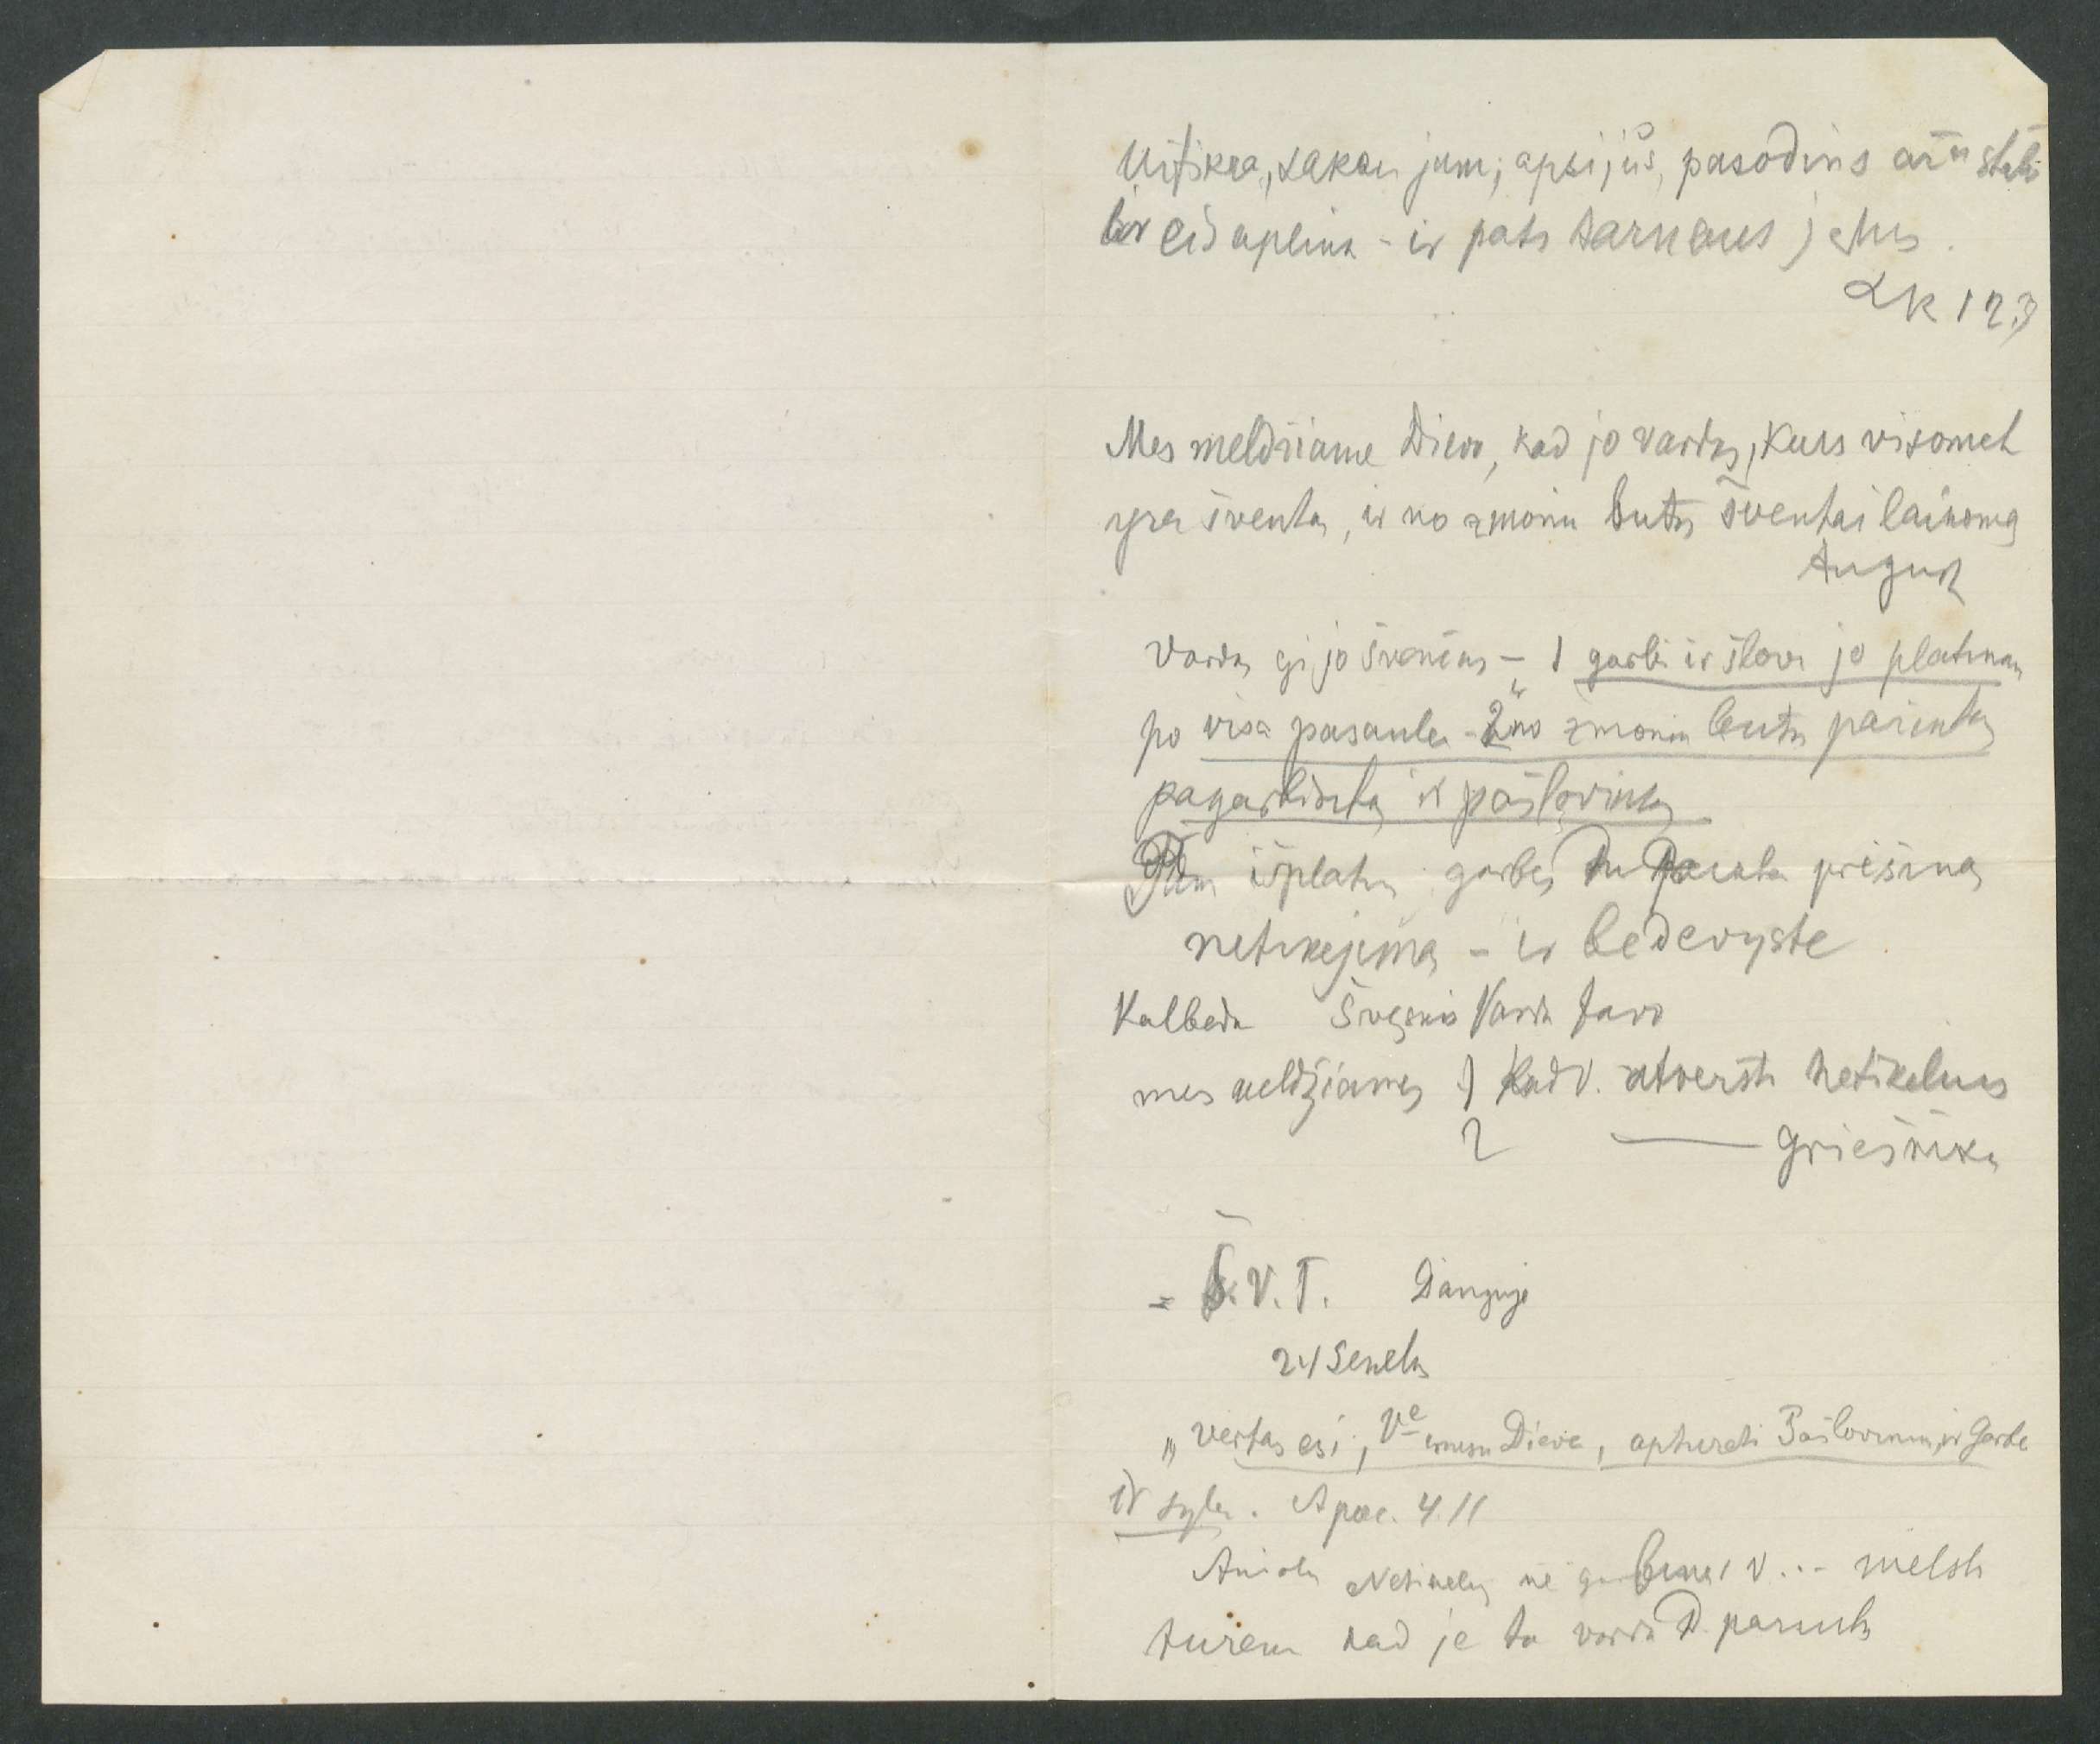 sakau jum; apsijūs, pasodins stali
ir eis aplink - ir pats tarnaus jems.
LK 12,3
Mes meldžiame Dievo, kad jo vardas, kurs visomet
yra šventas, ir no žmoniu butu šventai laikomas
August
Vardas gi jo švenčias - 1 garbė ir šlovė jo platinas
po visa pasaule - 2 no žmoniu butu pažintas
pagarbintas ir pašlovintas
išplat garbes priešinas
netikejimas - ir bedevyste
Kalbedami Švęskis Vardas Tavo
mes meldžiames 1) kad V. atversti netikelius
2 ——— griešnikus
= Š. V. T. Danguje
24 Senelu
„Vertas esi, Ve musu Dieve, apturėti Pašlovinima, ir Garbe
ir syla. Apoc. 4.11
Aniolu Netikelis ne garbina V... melsti
turem kad je ta varda D. pažintu